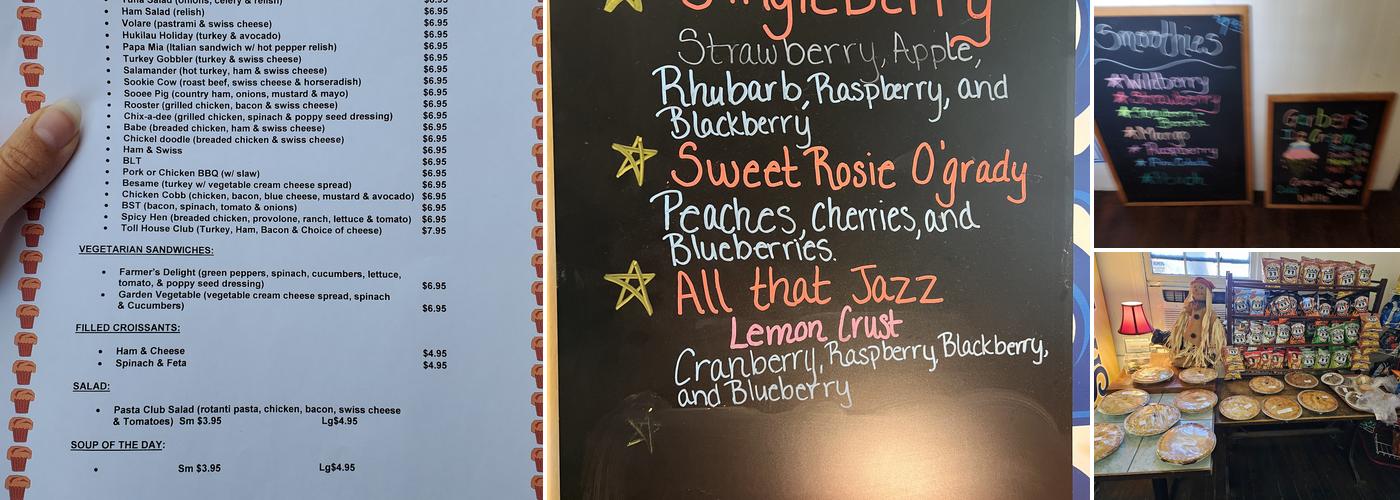 Tuna Salad (onions, celery & relish) $6.95
Ham Salad (relish) $6.95
Volare (pastrami & swiss cheese) $6.95
Hukilau Holiday (turkey & avocado) $6.95
Papa Mia (Italian sandwich w/ hot pepper relish) $6.95
Turkey Gobbler (turkey & swiss cheese) $6.95
Salamander (hot turkey, ham & swiss cheese) $6.95
Sookie Cow (roast beef, swiss cheese & horseradish) $6.95
Sooee Pig (country ham, onions, mustard & mayo) $6.95
Rooster (grilled chicken, bacon & swiss cheese) $6.95
Chix-a-dee (grilled chicken, spinach & poppy seed dressing) $6.95
Babe (breaded chicken, ham & swiss cheese) $6.95
Chickel doodle (breaded chicken & swiss cheese) $6.95
Ham & Swiss $6.95
BLT $6.95
Pork or Chicken BBQ (w/ slaw) $6.95
Besame (turkey w/ vegetable cream cheese spread) $6.95
Chicken Cobb (chicken, bacon, blue cheese, mustard & avocado) $6.95
BST (bacon, spinach, tomato & onions) $6.95
Spicy Hen (breaded chicken, provolone, ranch, lettuce & tomato) $6.95
Toll House Club (Turkey, Ham, Bacon & Choice of cheese) $7.95
VEGETARIAN SANDWICHES:
Farmer's Delight (green peppers, spinach, cucumbers, lettuce,
tomato, & poppy seed dressing) $6.95
Garden Vegetable (vegetable cream cheese spread, spinach
& Cucumbers) $6.95
FILLED CROISSANTS:
Ham & Cheese $4.95
Spinach & Feta $4.95
SALAD:
Pasta Club Salad (rotanti pasta, chicken, bacon, swiss cheese
& Tomatoes) Sm $3.95 Lg$4.95
SOUP OF THE DAY:
Sm $3.95 Lg$4.95
Jingleberry
Strawberry, Apple,
Rhubarb, Raspberry, and
Blackberry
Sweet Rosie O'grady
Peaches, Cherries, and
Blueberries.
All that Jazz
Lemon Crust
Cranberry, Raspberry, Blackberry,
and Blueberry
Smoothies
Wildberry
Strawberry
Strawberry
Banana
Mango
Raspberry
Pina Colada
Peach
Garber's
Ice Cream